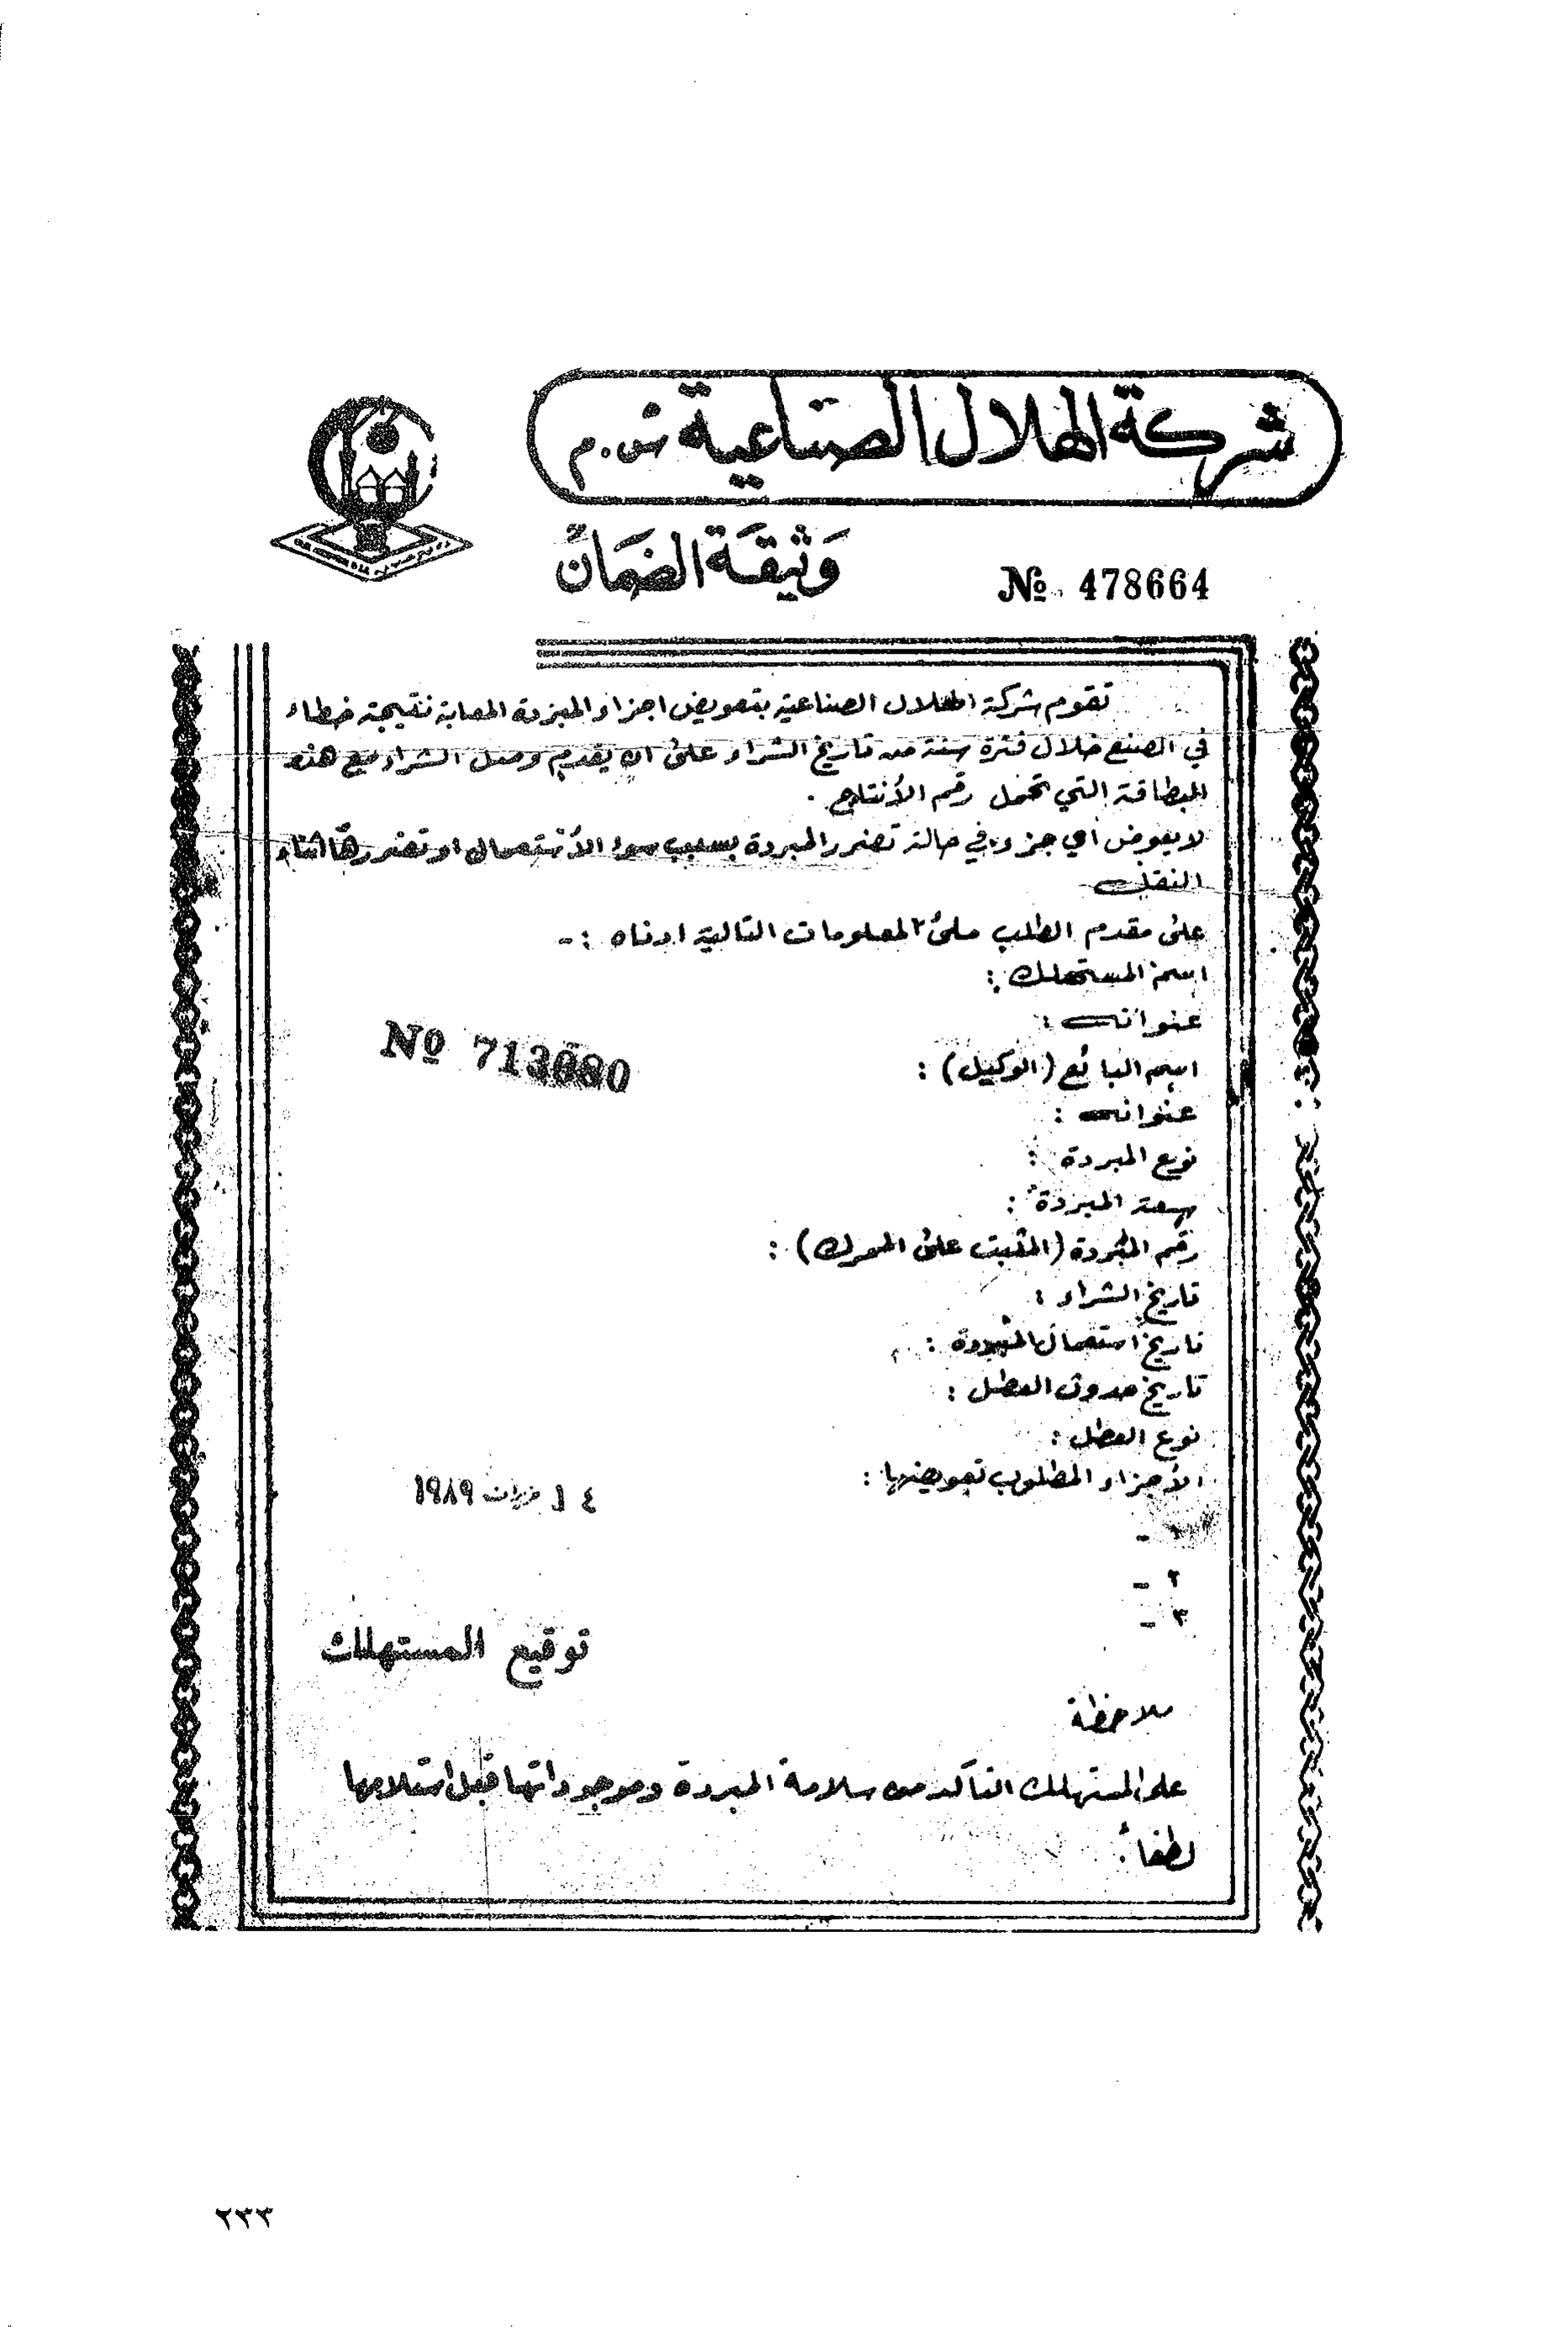 شركة الهلال الصناعية ش.م
وثيقة الضمان
№ 478664
تقوم شركة الهلال الصناعية بتعويض اجزاء المبردة المصابة نتيجة خطاء
في الصنع خلال فترة سنة من تاريخ الشراء على ان يقدم وصل الشراء مع هذه
البطاقة التي تحمل رقم الأنتاج .
لا يعوض اي جزء في حالة تضرر المبردة بسبب سوء الأستعمال او تضررها اثناء
النقل
على مقدم الطلب ملئ المعلومات التالية ادناه :-
اسم المستهلك :
عنوانه :
№ 713080
اسم البائع (الوكيل) :
عنوانه :
نوع المبردة :
سعة المبردة :
رقم المبردة (المثبت على المحرك) :
تاريخ الشراء :
تاريخ استعمال المبردة :
تاريخ حدوث العطل :
نوع العطل :
الأجزاء المطلوب تعويضها :
١٤ حزيران ١٩٨٩
-
٢ -
٣ -
توقيع المستهلك
ملاحظة
على المستهلك التأكد من سلامة المبردة وموجوداتها قبل استلامها
لطفاً .
٢٣٣